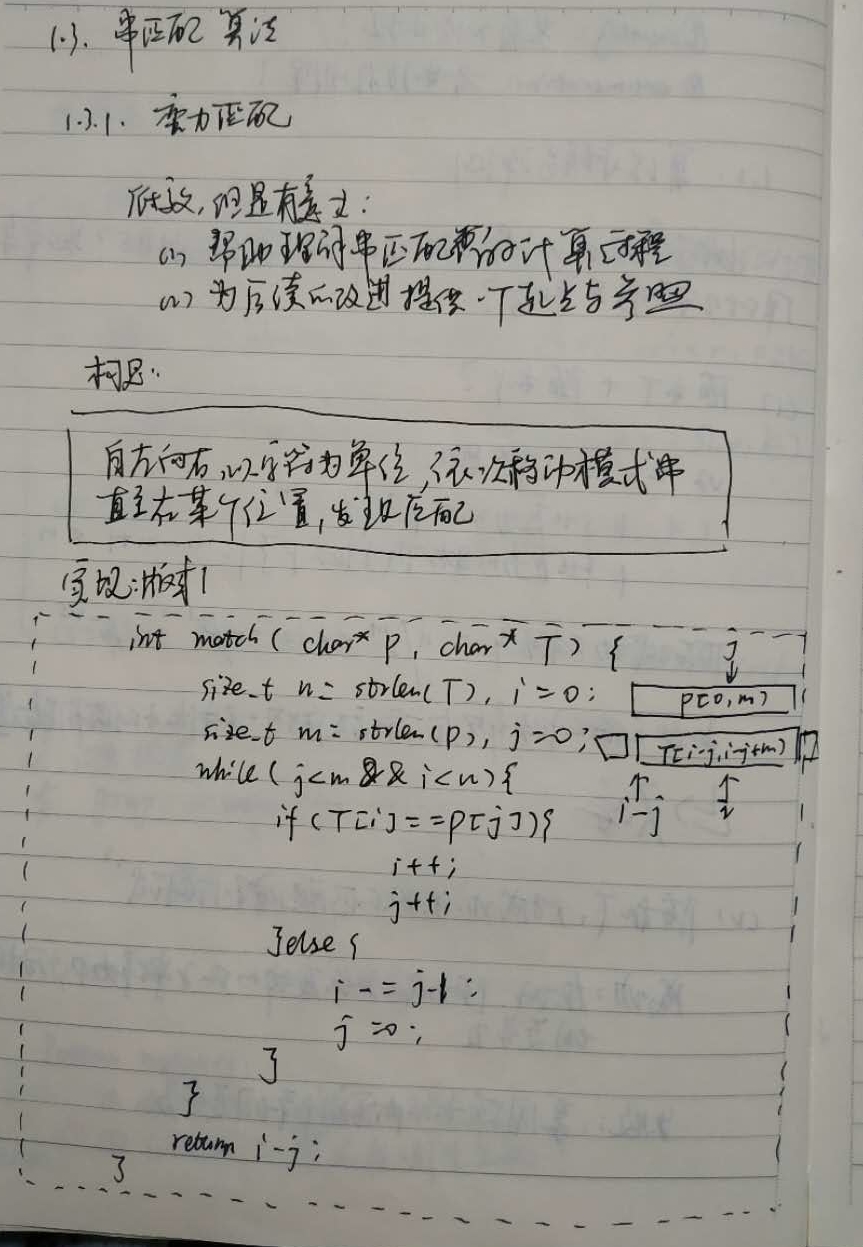 1.3. 串匹配算法
1.3.1. 蛮力匹配
低效,但是有意义:
(1) 帮助理解串匹配的计算过程
(2) 为后续的改进提供一个起点与参照
构思:
自左向右,以字符为单位,依次移动模式串
直至在某个位置,发现匹配
实现:版本1
int match( char* P, char* T) {
j
size_t n = strlen(T), i = 0;
P[0,m)
size_t m = strlen(P), j = 0;
T[i-j, i-j+m)
while( j<m && i<n){
i-j
i
if(T[i]==P[j]){
i++;
j++;
}else{
i -= j-1;
j = 0;
}
}
return i-j;
}